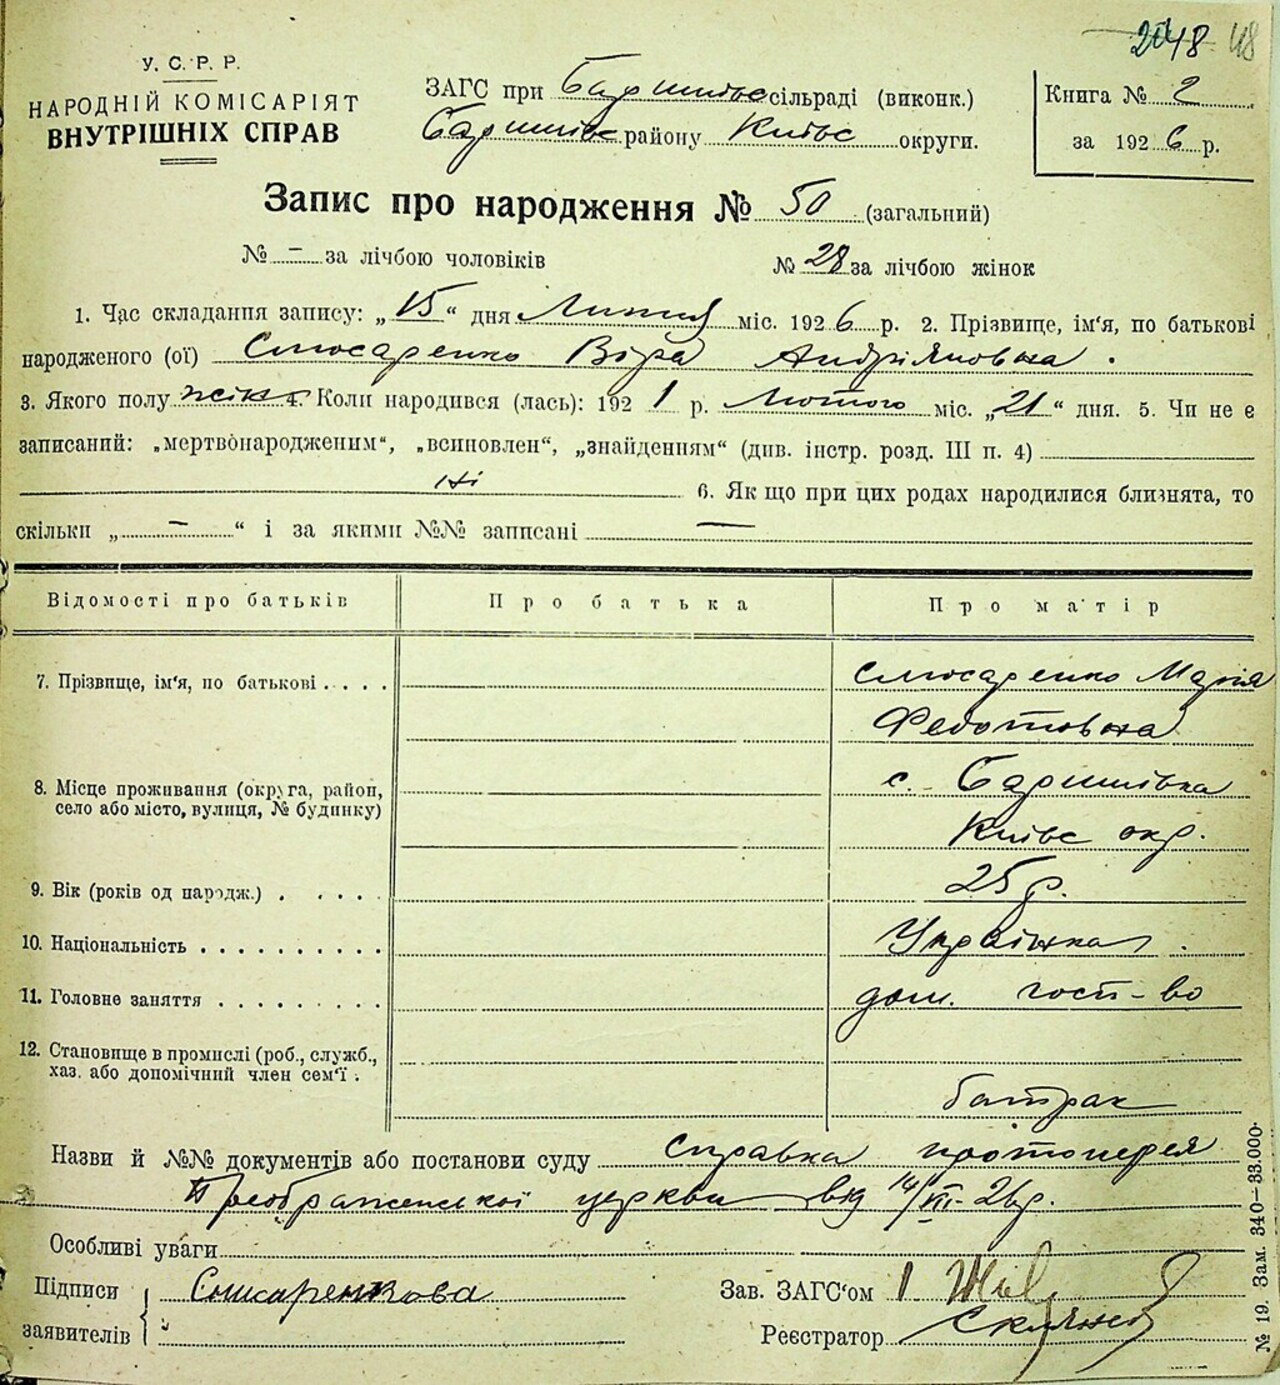 48
У. С. Р. Р.
НАРОДНІЙ КОМІСАРІЯТ
ВНУТРІШНІХ СПРАВ
ЗАГС при Баришівс сільраді (виконк.)
Баришівс району Київс округи.
Книга № 2
за 1926 р.
Запис про народження № 50 (загальний)
№ – за лічбою чоловіків
№ 28 за лічбою жінок
1. Час складання запису: „15“ дня Липня міс. 1926 р. 2. Прізвище, ім‘я, по батькові
народженого (ої) Слюсаренко Віра Андріяновна.
3. Якого полу жін 4. Коли народився (лась): 1921 р. Лютого міс. „21“ дня. 5. Чи не є
записаний: „мертвонародженим“, „всиновлен“, „знайденням“ (див. інстр. розд. III п. 4)
Ні 6. Як що при цих родах народилися близнята, то
скільки „ – “ і за якими №№ записані —
Відомості про батьків Про батька Про матір
7. Прізвище, ім‘я, по батькові . . . . Слюсаренко Марія
Федотовна
8. Місце проживання (округа, район,
село або місто, вулиця, № будинку)
с. Баришівка
Київс окр.
9. Вік (років од народж.) . . . . . 25 р.
10. Національність . . . . . . . . . . Українка.
11. Головне заняття . . . . . . . . . дом. госп-во
12. Становище в промислі (роб., служб.,
хаз. або допомічний член сем‘ї .
батрак
Назви й №№ документів або постанови суду Справка протоиерея
Преображенської церкви від 14/VII-26р.
Особливі уваги
Підписи
заявителів
Слюсаренкова
Зав. ЗАГС‘ом
Реєстратор
№ 19. Зам. 340—33.000.